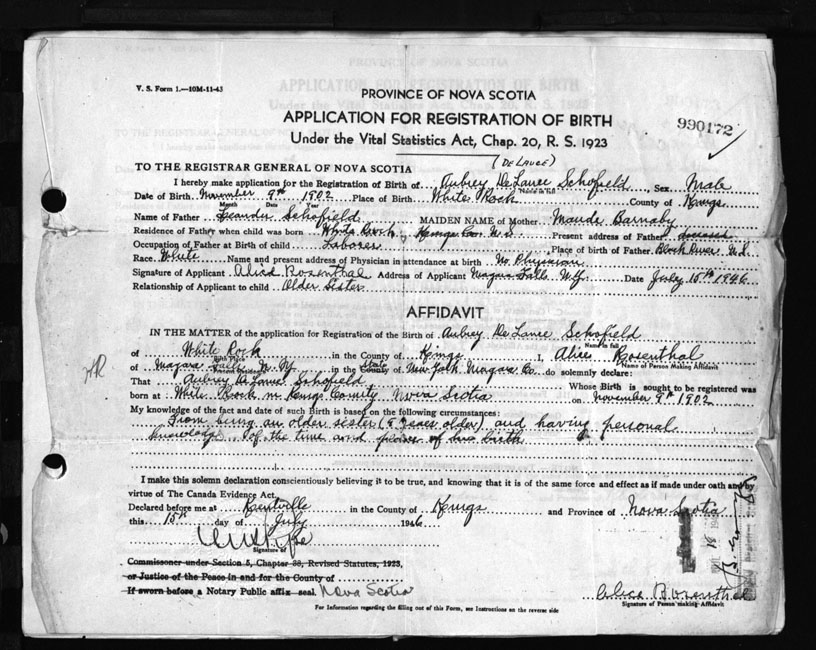 V. S. Form 1.—10M-11-43
PROVINCE OF NOVA SCOTIA
APPLICATION FOR REGISTRATION OF BIRTH
Under the Vital Statistics Act, Chap. 20, R. S. 1923
990172
(DE LANCE)
TO THE REGISTRAR GENERAL OF NOVA SCOTIA
I hereby make application for the Registration of Birth of Aubrey De Lance Schofield Sex Male
Name in full
Date of Birth November 9th 1902 Place of Birth White Rock County of Kings
Month Date Year
Name of Father Leander Schofield MAIDEN NAME of Mother Maude Barnaby
Residence of Father when child was born White Rock Kings Co. N.S. Present address of Father deceased
Occupation of Father at Birth of child Laborer Place of birth of Father Black River N.S.
Race White Name and present address of Physician in attendance at birth No Physician
Signature of Applicant Alice Rosenthal Address of Applicant Niagara Falls N.Y. Date July 15th 1946
Relationship of Applicant to child Older Sister
AFFIDAVIT
IN THE MATTER of the application for Registration of the Birth of Aubrey De Lance Schofield
Name in full
of White Rock in the County of Kings I, Alice Rosenthal
Birth Place Name of Person Making Affidavit
of Niagara Falls N.Y. in the County State of New York Niagara Co. do solemnly declare:
That Aubrey De Lance Schofield Whose Birth is sought to be registered was
born at White Rock in Kings County Nova Scotia on November 9th 1902
My knowledge of the fact and date of such Birth is based on the following circumstances:
From being an older sister ( years older) and having personal
knowledge of the time and place of his birth
I make this solemn declaration conscientiously believing it to be true, and knowing that it is of the same force and effect as if made under oath and by
virtue of The Canada Evidence Act.
Declared before me at Kentville in the County of Kings and Province of Nova Scotia
this 15th day of July 1946
Signature of
Commissioner under Section 5, Chapter 38, Revised Statutes, 1923,
or Justice of the Peace in and for the County of
If sworn before a Notary Public affix seal. Nova Scotia
Alice Rosenthal
Signature of Person making Affidavit
For Information regarding the filling out of this Form, see Instructions on the reverse side